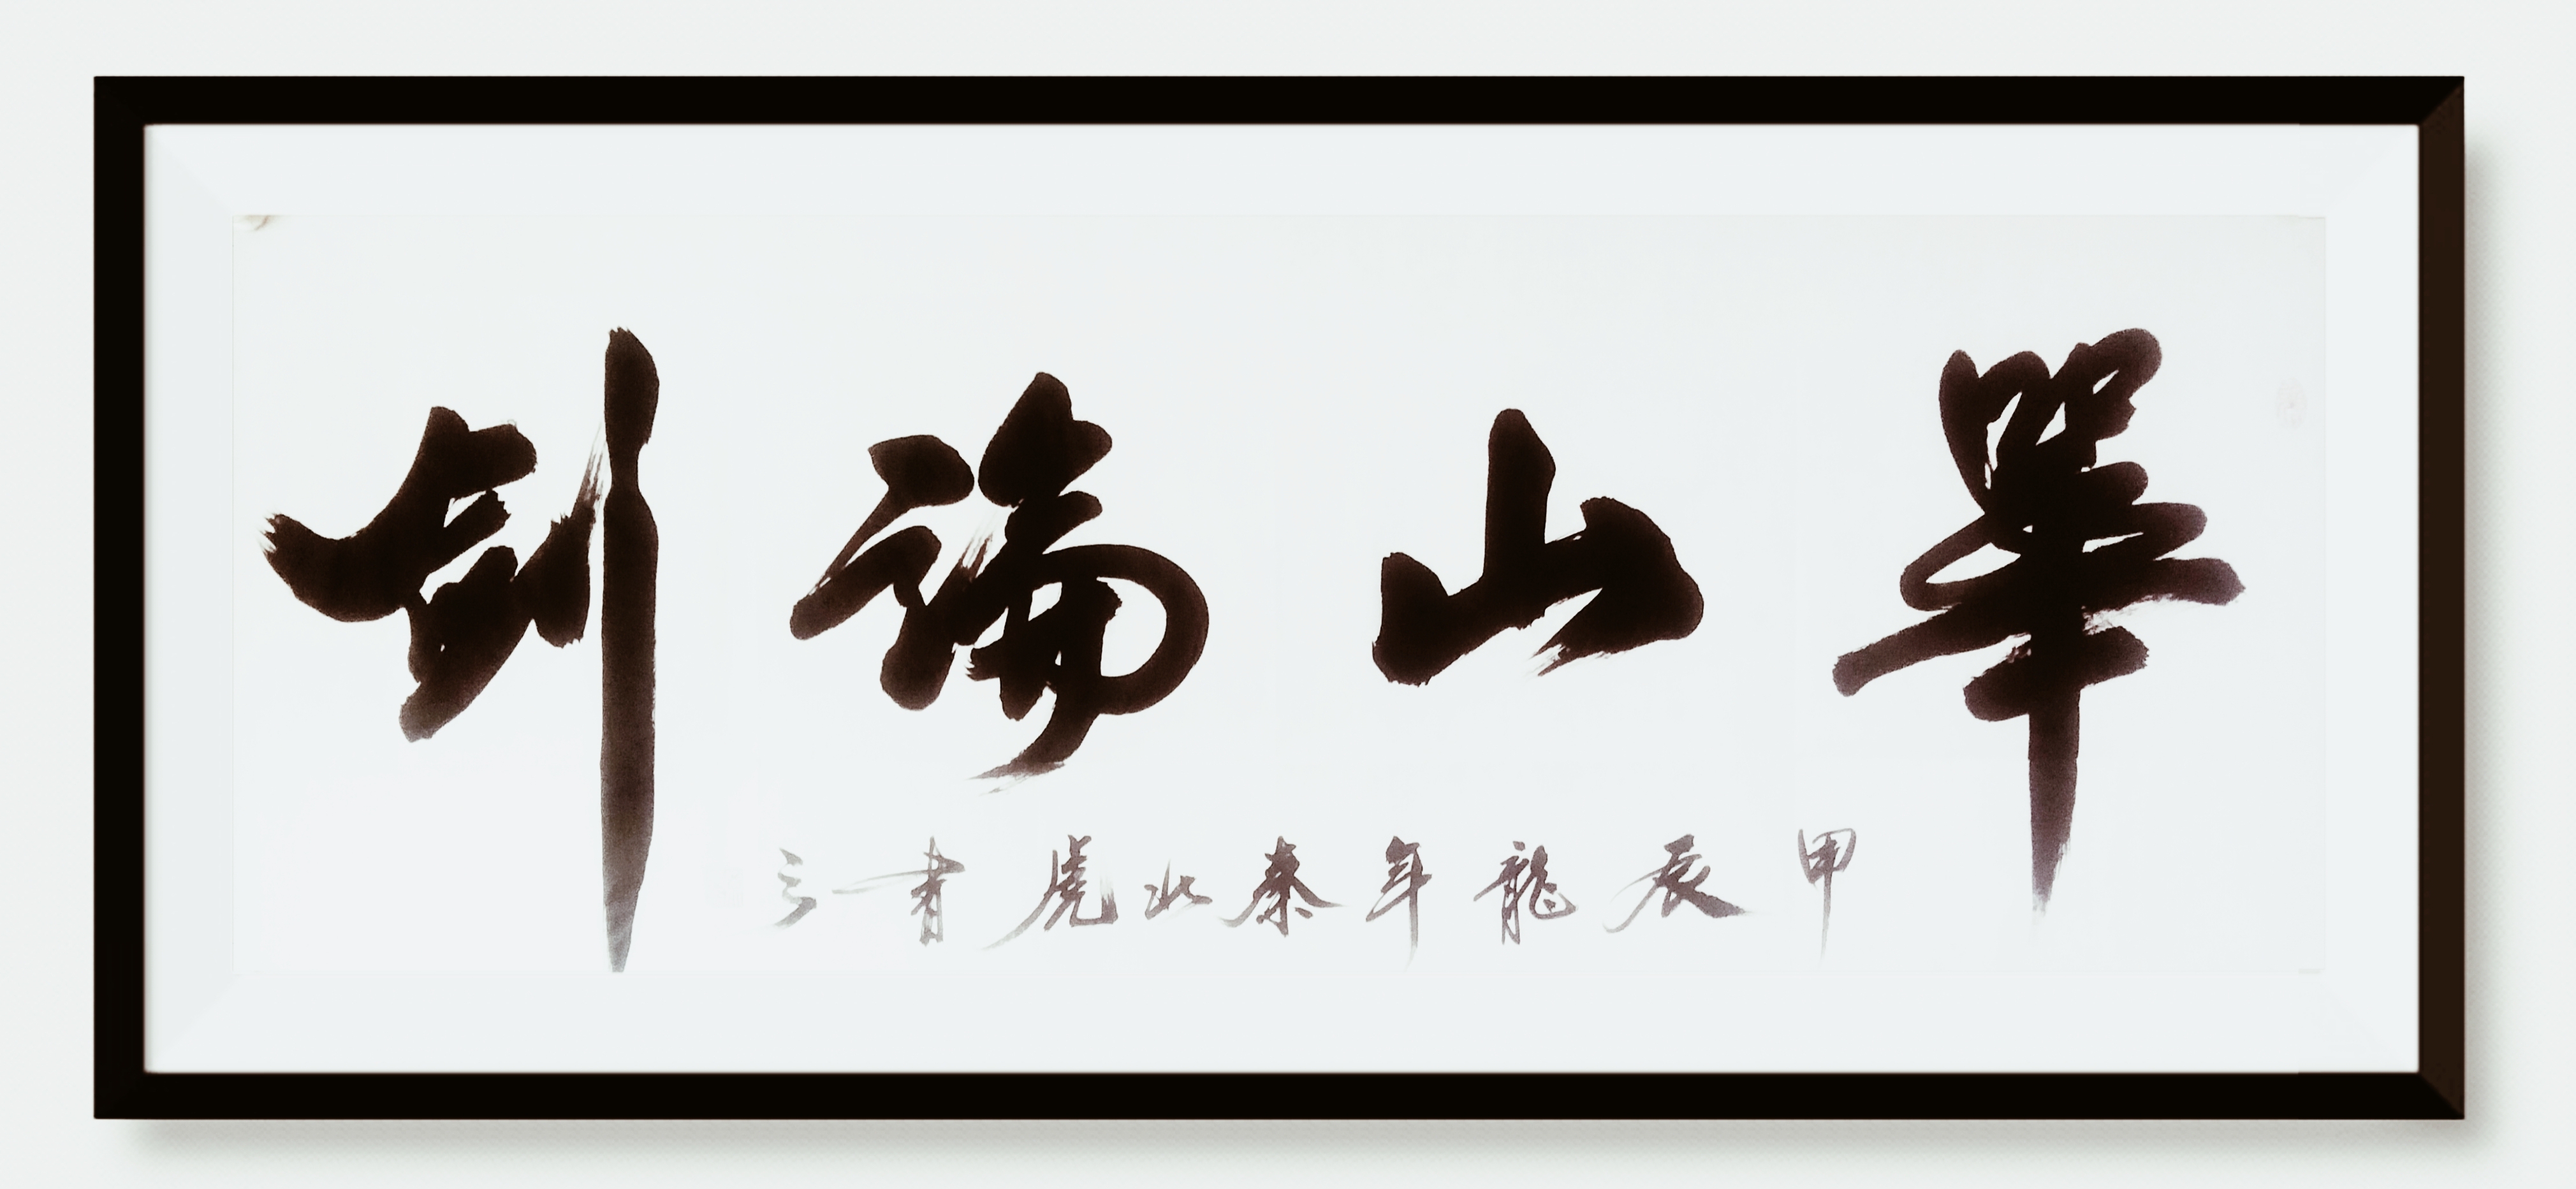 華山論劍
甲辰龍年秦北虎書之